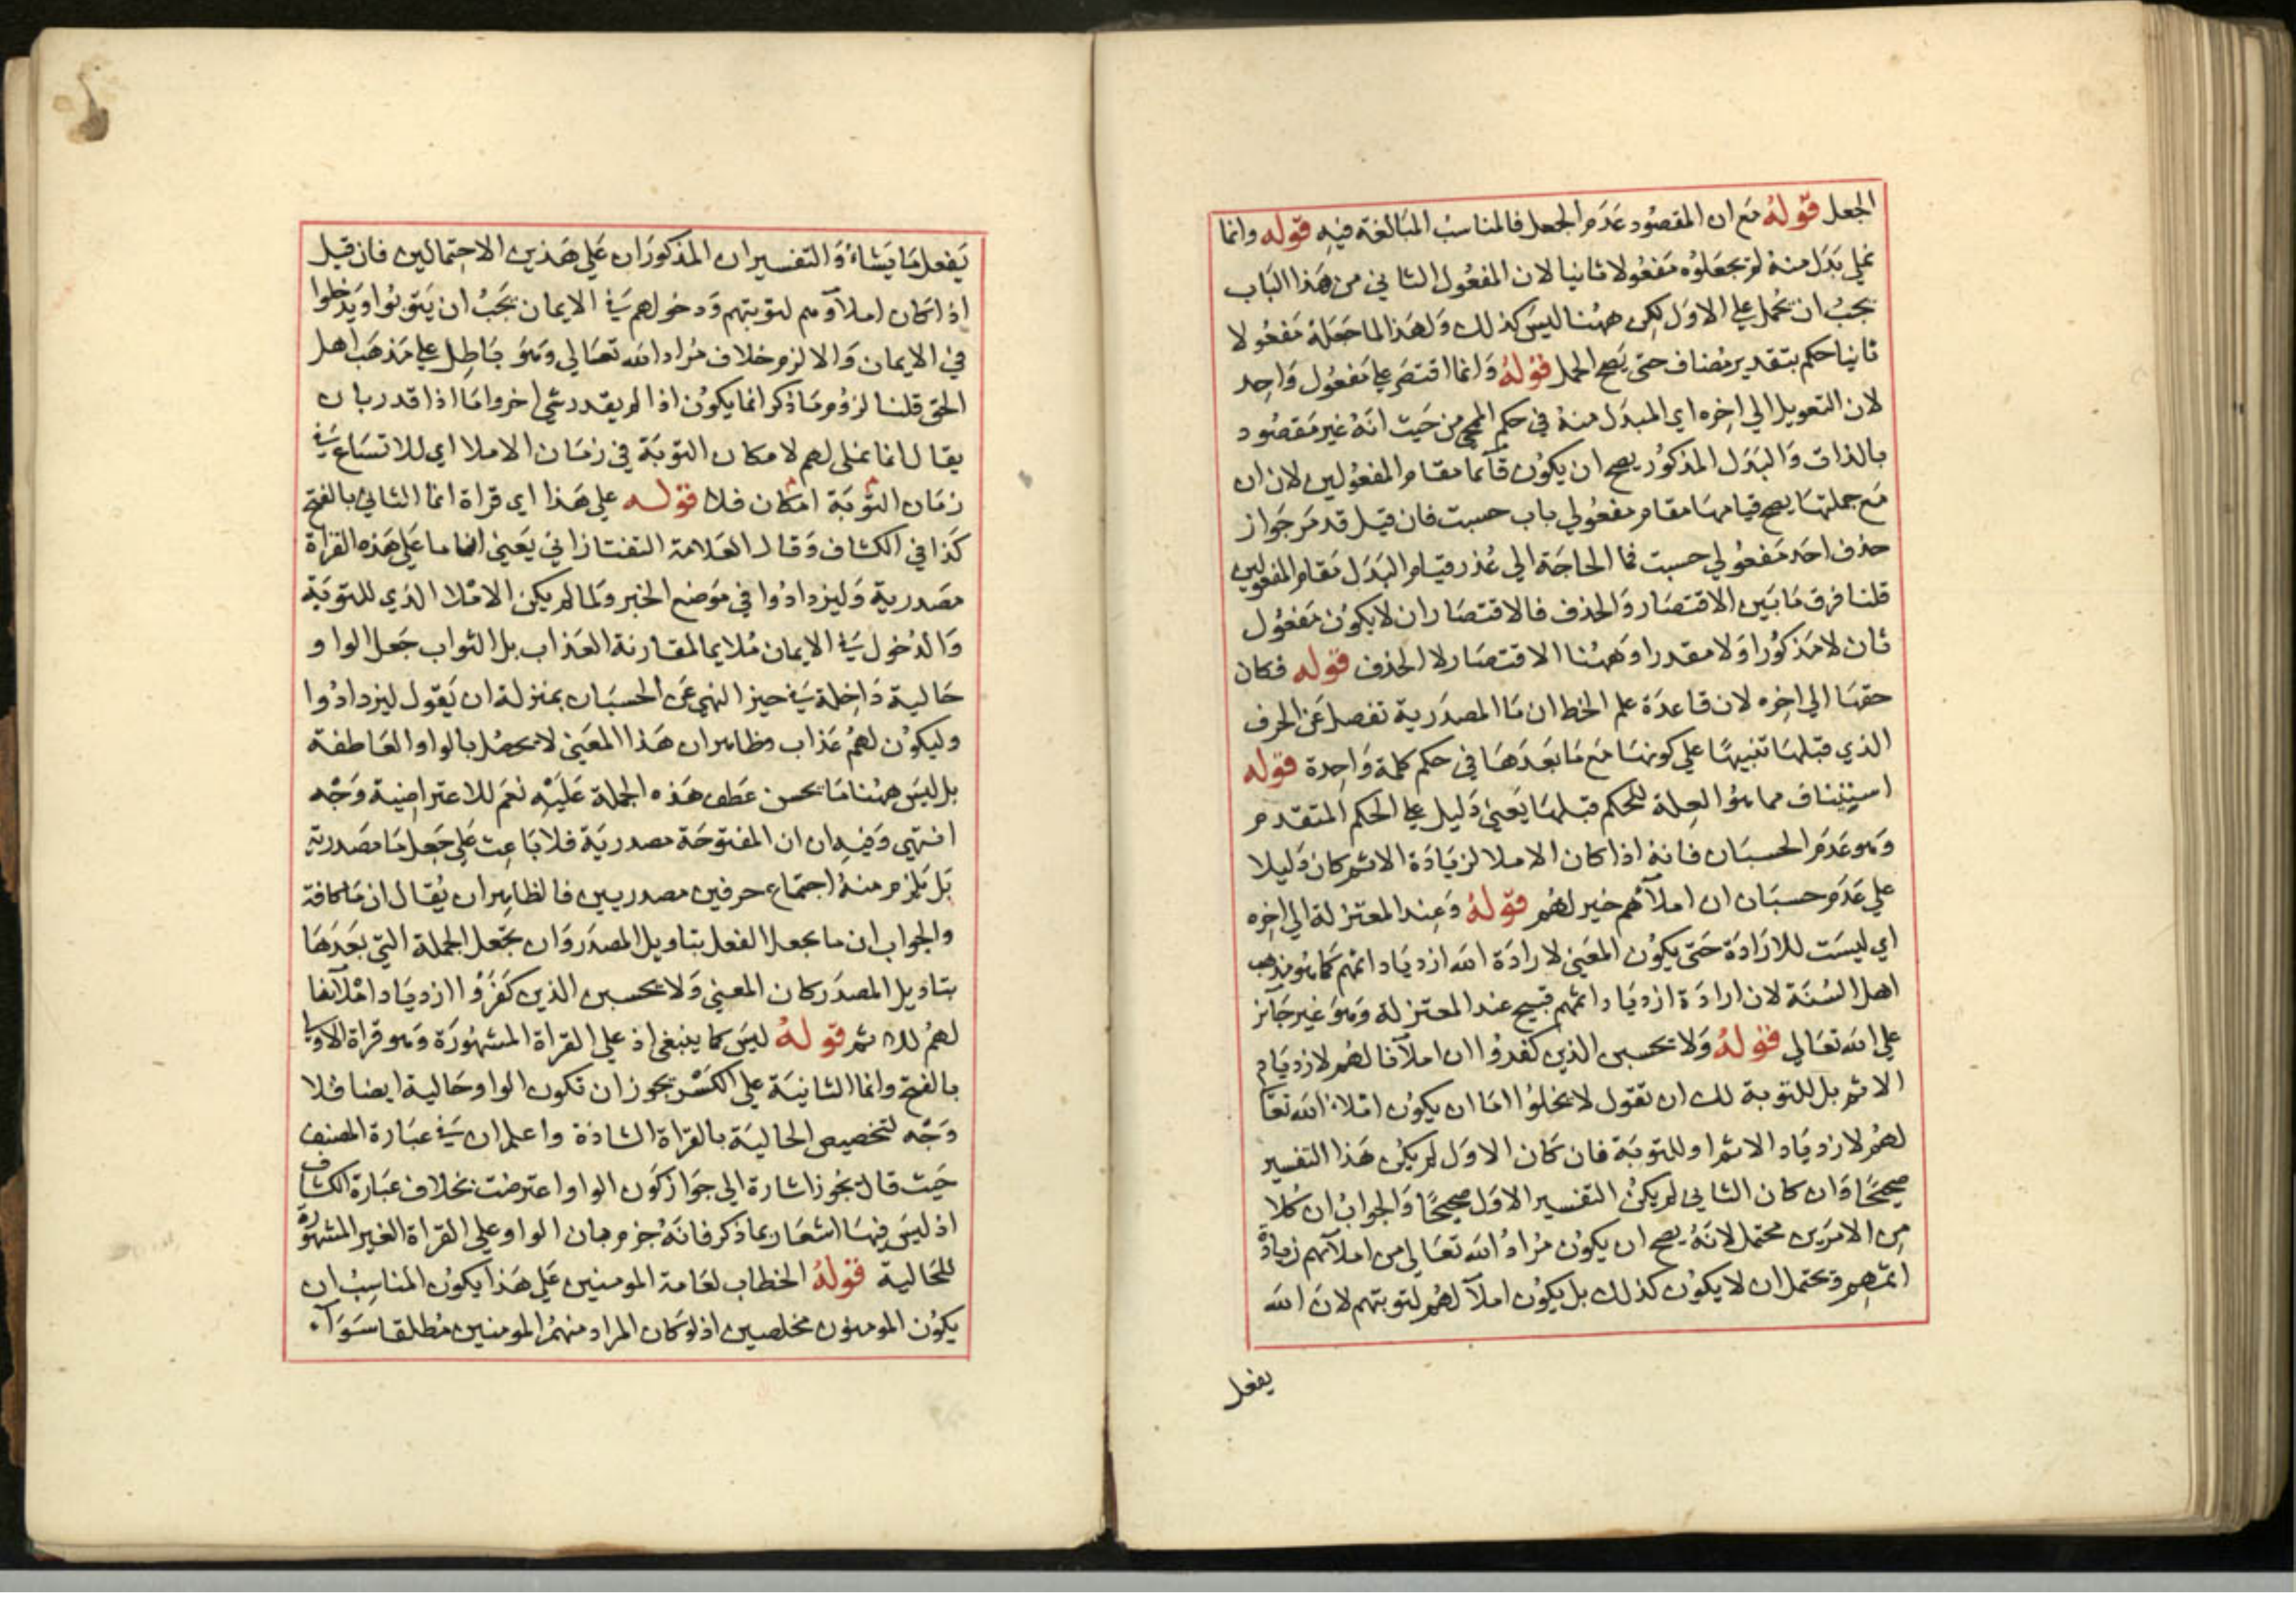 الجعل قوله مع ان المقصود عدم الجعل فالمناسب المبالغة فيه قوله وانما
نملي بدل منه لم يجعلوه مفعولا ثانيا لان المفعول الثاني من هذا الباب
يجب ان يحمل على الاول لكن ههنا ليس كذلك ولهذا لما جعله مفعولا
ثانيا حكم بتقدير مضاف حتى يصح الحمل قوله وانما اقتصر على مفعول واحد
لان التعويل الي اخره اي المبدل منه في حكم المنحى من حيث انه غير مقصود
بالذات والبدل المذكور يصح ان يكون قآئما مقام المفعولين لان ان
مع جملتها يصح قيامها مقام مفعولي باب حسبت فان قيل قد مر جواز
حذف احد مفعولي حسبت فما الحاجة الي عذر قيام البدل مقام المفعولين
قلنا فرق ما بين الاقتصار والحذف فالاقتصار ان لا يكون مفعول
ثان لا مذكورا ولا مقدرا وههنا الاقتصار لا الحذف قوله فكان
حقها الي اخره لان قاعدة علم الخط ان ما المصدرية تفصل عن الحرف
الذي قبلها تنبيها علي كونها مع ما بعدها في حكم كلمة واحدة قوله
استيناف مما هو العلة للحكم قبلها يعني دليل على الحكم المتقدم
وهو عدم الحسبان فانه اذا كان الاملا لزيادة الاثم كان دليلا
علي عدم حسبان ان املآهم خير لهم قوله وعند المعتزلة الي اخره
اي ليست للارادة حتى يكون المعنى لارادة الله ازدياد اثمهم كما هو مذهب
اهل السنة لان ارادة ازدياد اثمهم قبيح عند المعتزلة وهو غير جآئز
علي الله تعالي قوله ولا يحسبن الذين كفروا ان املآنا لهم لازدياد
الاثم بل للتوبة لك ان تقول لا يخلوا اما ان يكون املاء الله تعا
لهم لازدياد الاثم او للتوبة فان كان الاول لم يكن هذا التفسير
صحيحًا وان كان الثاني لم يكن التفسير الاول صحيحًا والجواب ان كلا
من الامرين محتمل لانه يصح ان يكون مراد الله تعالي من املآئهم زيادة
اثمهم ويحتمل ان لا يكون كذلك بل يكون املآ لهم لتوبتهم لان الله
يفعل
يفعل ما يشاء والتفسيران المذكوران علي هذين الاحتمالين فان قيل
اذا كان املآوهم لتوبتهم ودخولهم في الايمان يجب ان يتوبوا ويدخلوا
في الايمان والا لزم خلاف مراد الله تعالي وهو باطل على مذهب اهل
الحق قلنا لزوم ما ذكر انما يكون اذا لم يقدر شي اخر واما اذا قدر بان
يقال انما نملى لهم لامكان التوبة في زمان الاملا اي للاتساع في
زمان التوبة امكان فلا قوله علي هذا اي قراة انما الثاني بالفتح
كذا في الكشاف وقال العلامة التفتازاني يعني انما ما علي هذه القراة
مصدرية وليزدادوا في موضع الخبر ولما لم يكن الاملا الذي للتوبة
والدخول في الايمان ملايما لمقارنة العذاب بل الثواب جعل الواو
حالية داخلة في حيز النهي عن الحسبان بمنزلة ان يقول ليزدادوا
وليكون لهم عذاب وظاهر ان هذا المعنى لا يحصل بالواو العاطفة
بل ليس ههنا ما يحسن عطف هذه الجملة عليه نعم للاعتراضية وجه
انتهى وفيه ان ان المفتوحة مصدرية فلا باعث علي جعل ما مصدرية
بل يلزم منه اجتماع حرفين مصدريين فالظاهر ان يقال ان ما كافة
والجواب ان ما يجعل الفعل بتاويل المصدر وان يجعل الجملة التي بعدها
بتاويل المصدر كان المعنى ولا يحسبن الذين كفروا ازدياد املآئنا
لهم للاثم قوله ليس كما ينبغي اذ علي القراة المشهورة وهو قراة الاولى
بالفتح وانما الثانية علي الكسر يجوز ان تكون الواو حالية ايضا فلا
وجه لتخصيص الحالية بالقراة الشاذة واعلم ان في عبارة المصنف
حيث قال يجوز اشارة الي جواز كون الواو اعترضت بخلاف عبارة الكشاف
اذ ليس فيها اشعار بما ذكر فانه جزم بان الواو علي القراة الغير المشهورة
للحالية قوله الخطاب لعامة المومنين علي هذا يكون المناسب ان
يكون المومنون مخلصين اذ لو كان المراد منهم المومنين مطلقا سوآء